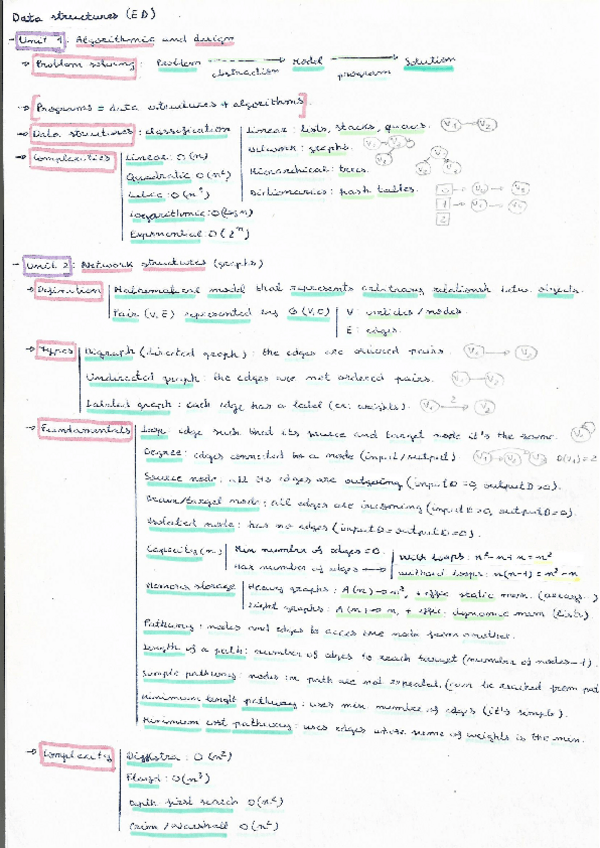 Data structures (ED)
- Unit 1: Algorithmic and design
→ Problem solving: Problem → abstraction → Model → program → Solution
→ Programs = data structures + algorithms.
→ Data structures: classification
Linear: lists, stacks, queues. V1 V2
Network: graphs.
Hierarchical: trees.
Dictionaries: hash tables.
→ Complexities
Linear O(n)
Quadratic O(n²)
Cubic O(n³)
Logarithmic: O(log n)
Exponential O(2ⁿ)
- Unit 2: Network structures (graphs)
→ Definition Mathematical model that represents arbitrary relationsh. betw. objects.
Pair (V, E) represented by G(V,E)
V: vertices / nodes.
E: edges.
→ Types Digraph (directed graph): the edges are ordered pairs. V1 → V2
Undirected graph: the edges are not ordered pairs. V1 V2
Labeled graph: each edge has a label (ex: weights). V1 2 V2
→ Fundamentals Loop: edge such that its source and target node it's the same.
Degree: edges connected to a node (input/output) D(V1)=2
Source node: all its edges are outgoing (input D=0, output D>0).
target node: all edges are incoming (input D>0, output D=0).
Isolated node: has no edges (input D=output D=0).
Capacity (n) Min number of edges = 0.
Max number of edges → With loops: n²-n+n = n²
without loops: n(n-1) = n²-n
Memory storage Heavy graphs: A(n) → n², + effic static mem. (arrays..)
Light graphs: A(n) → n, + effic: dynamic mem (lists)
Pathway: nodes and edges to acces one node from another.
Length of a path: number of edges to reach target (number of nodes-1).
Simple pathway: nodes in path are not repeated. (can be reached from
Minimum lengh pathway: uses min number of edges (it's simple).
Minimum cost pathway: uses edges whose sume of weights is the min.
→ Complexity Dijkstra: O(n²)
Floyd: O(n³)
Depth first search O(n²)
Prim / Warshall O(n²)